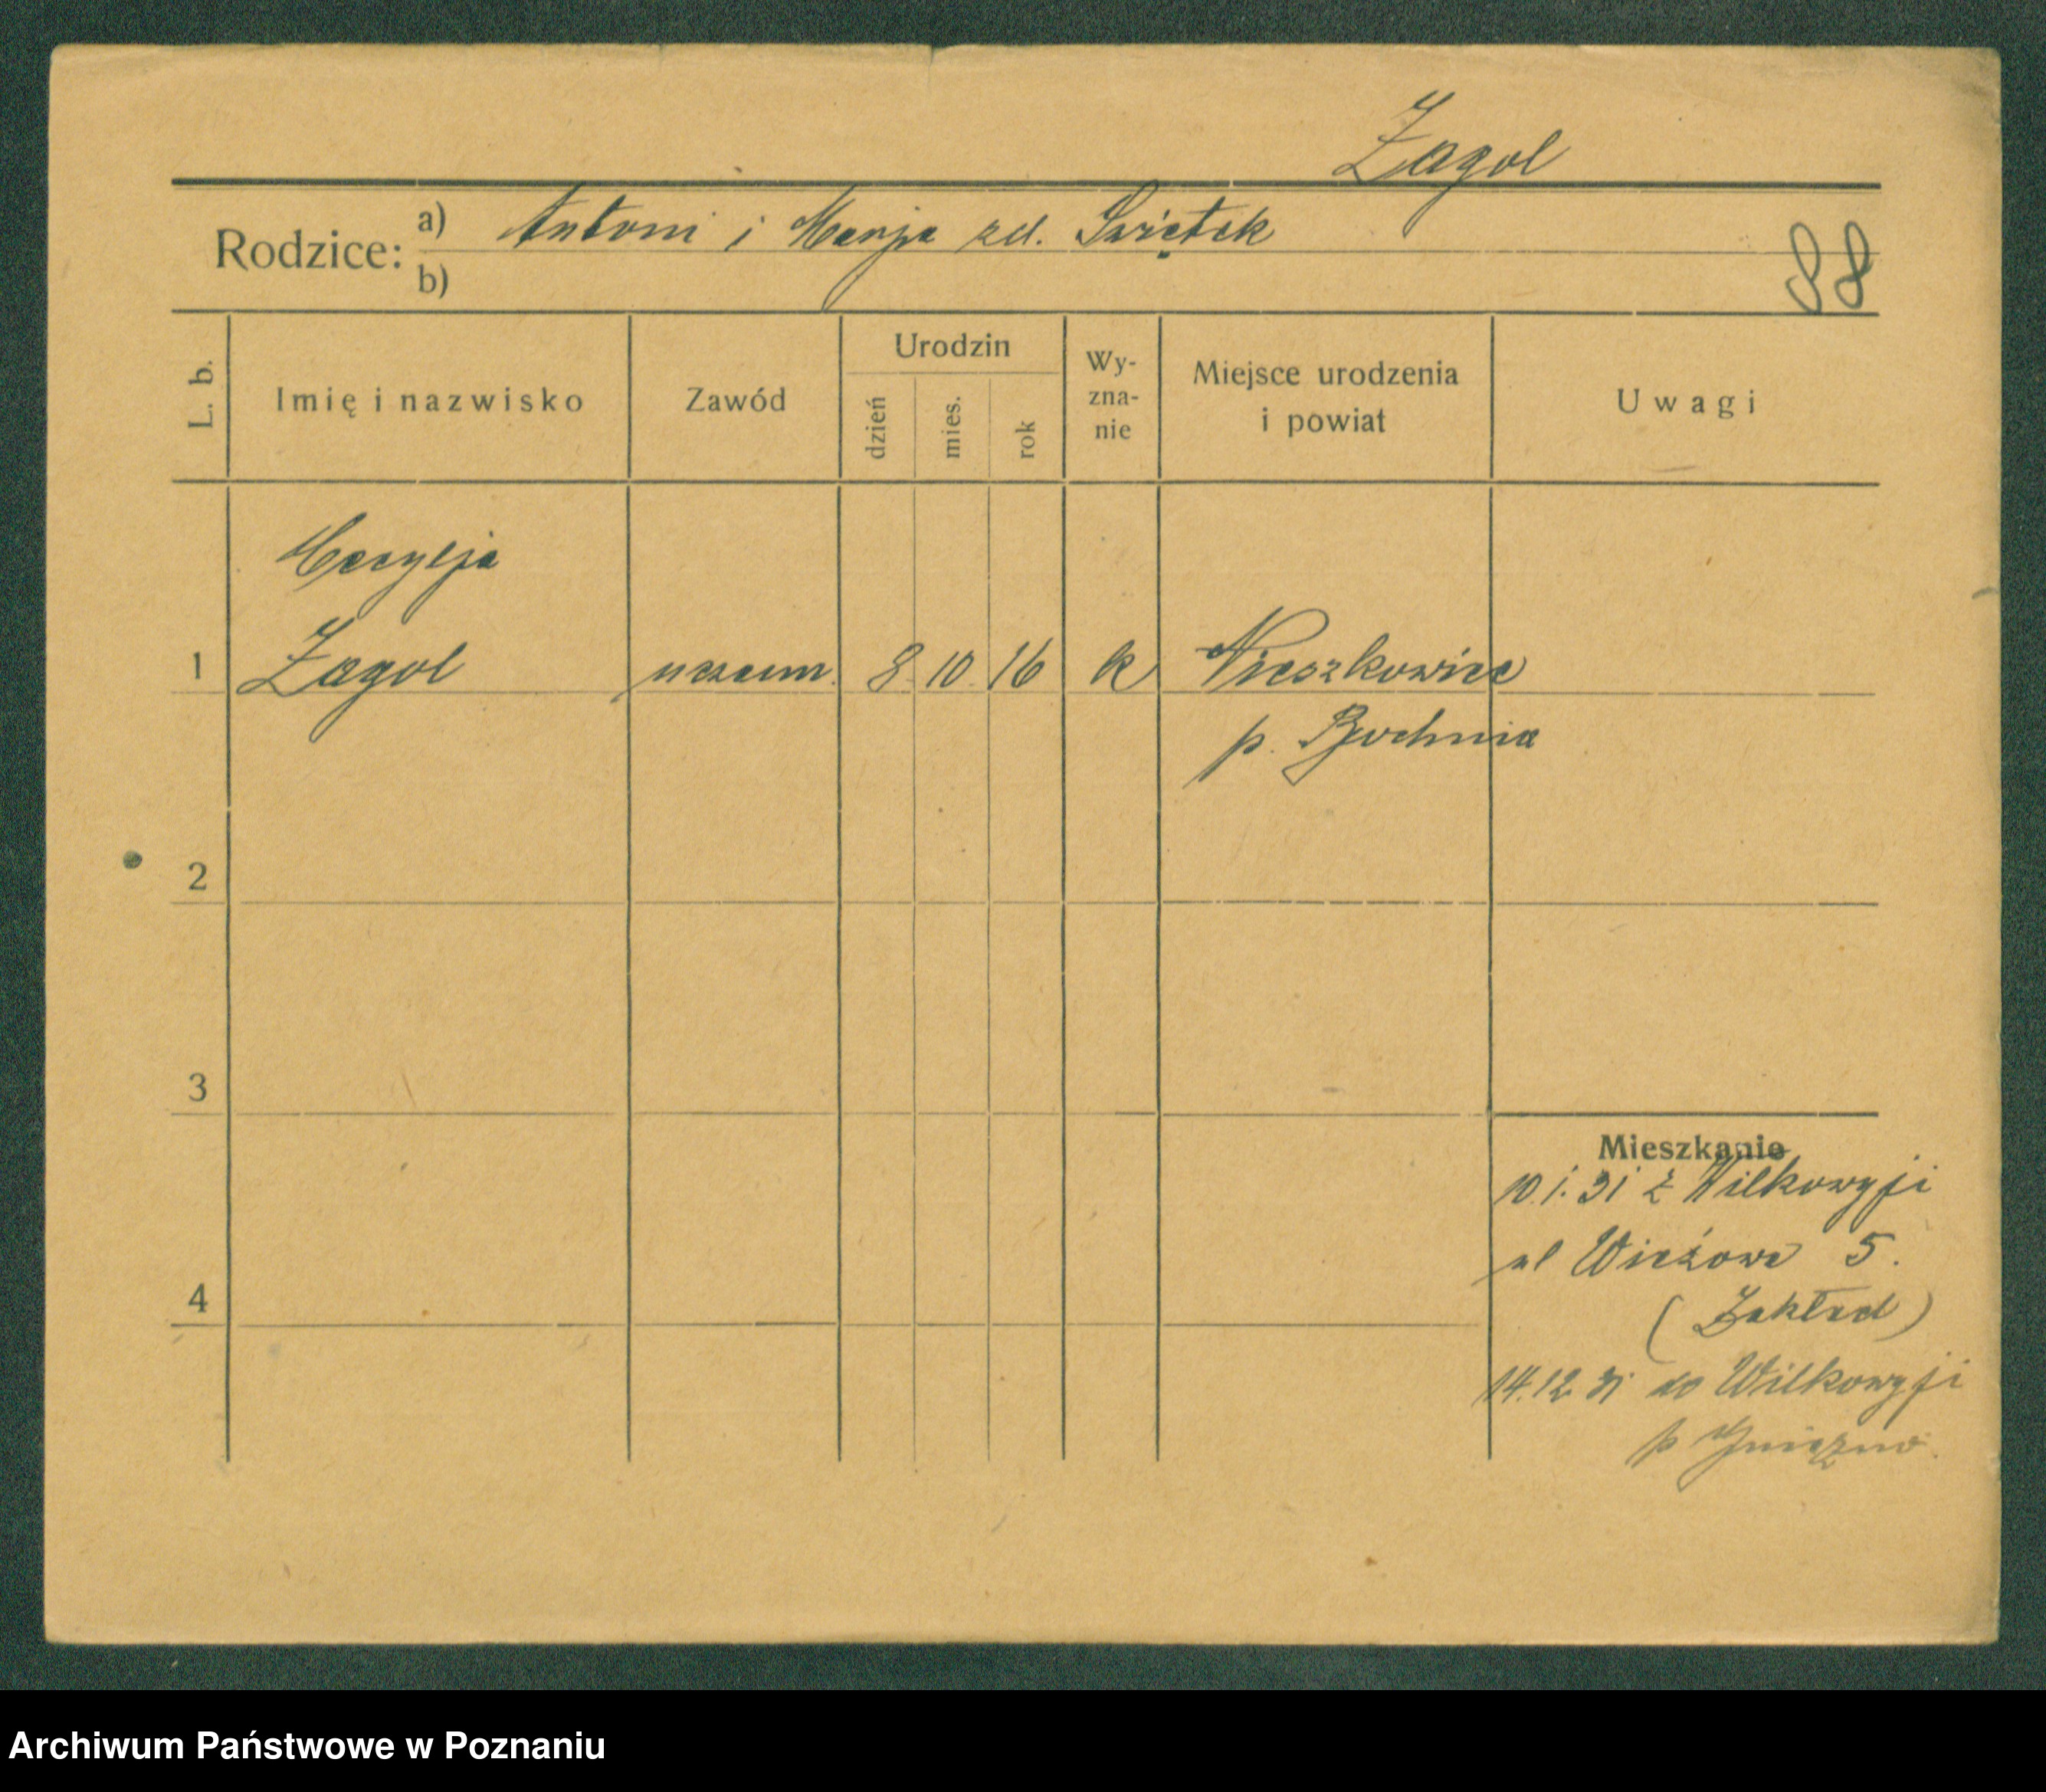 Żagol
Rodzice: a) Antoni i Marja zd. Świętek
b)
88
L. b. Imię i nazwisko Zawód Urodzin dzień mies. rok Wy-zna-nie Miejsce urodzenia i powiat Uwagi
Marylja
1 Żagol uczenn. 8 10 16 k Nieszkowice
p. Bochnia
2
3
Mieszkanie
10.1.31 z Wilkowyji
ul Wieżowa 5.
4
(Zakład)
14.12 31 do Wilkowyji
p Gniezno
Archiwum Państwowe w Poznaniu